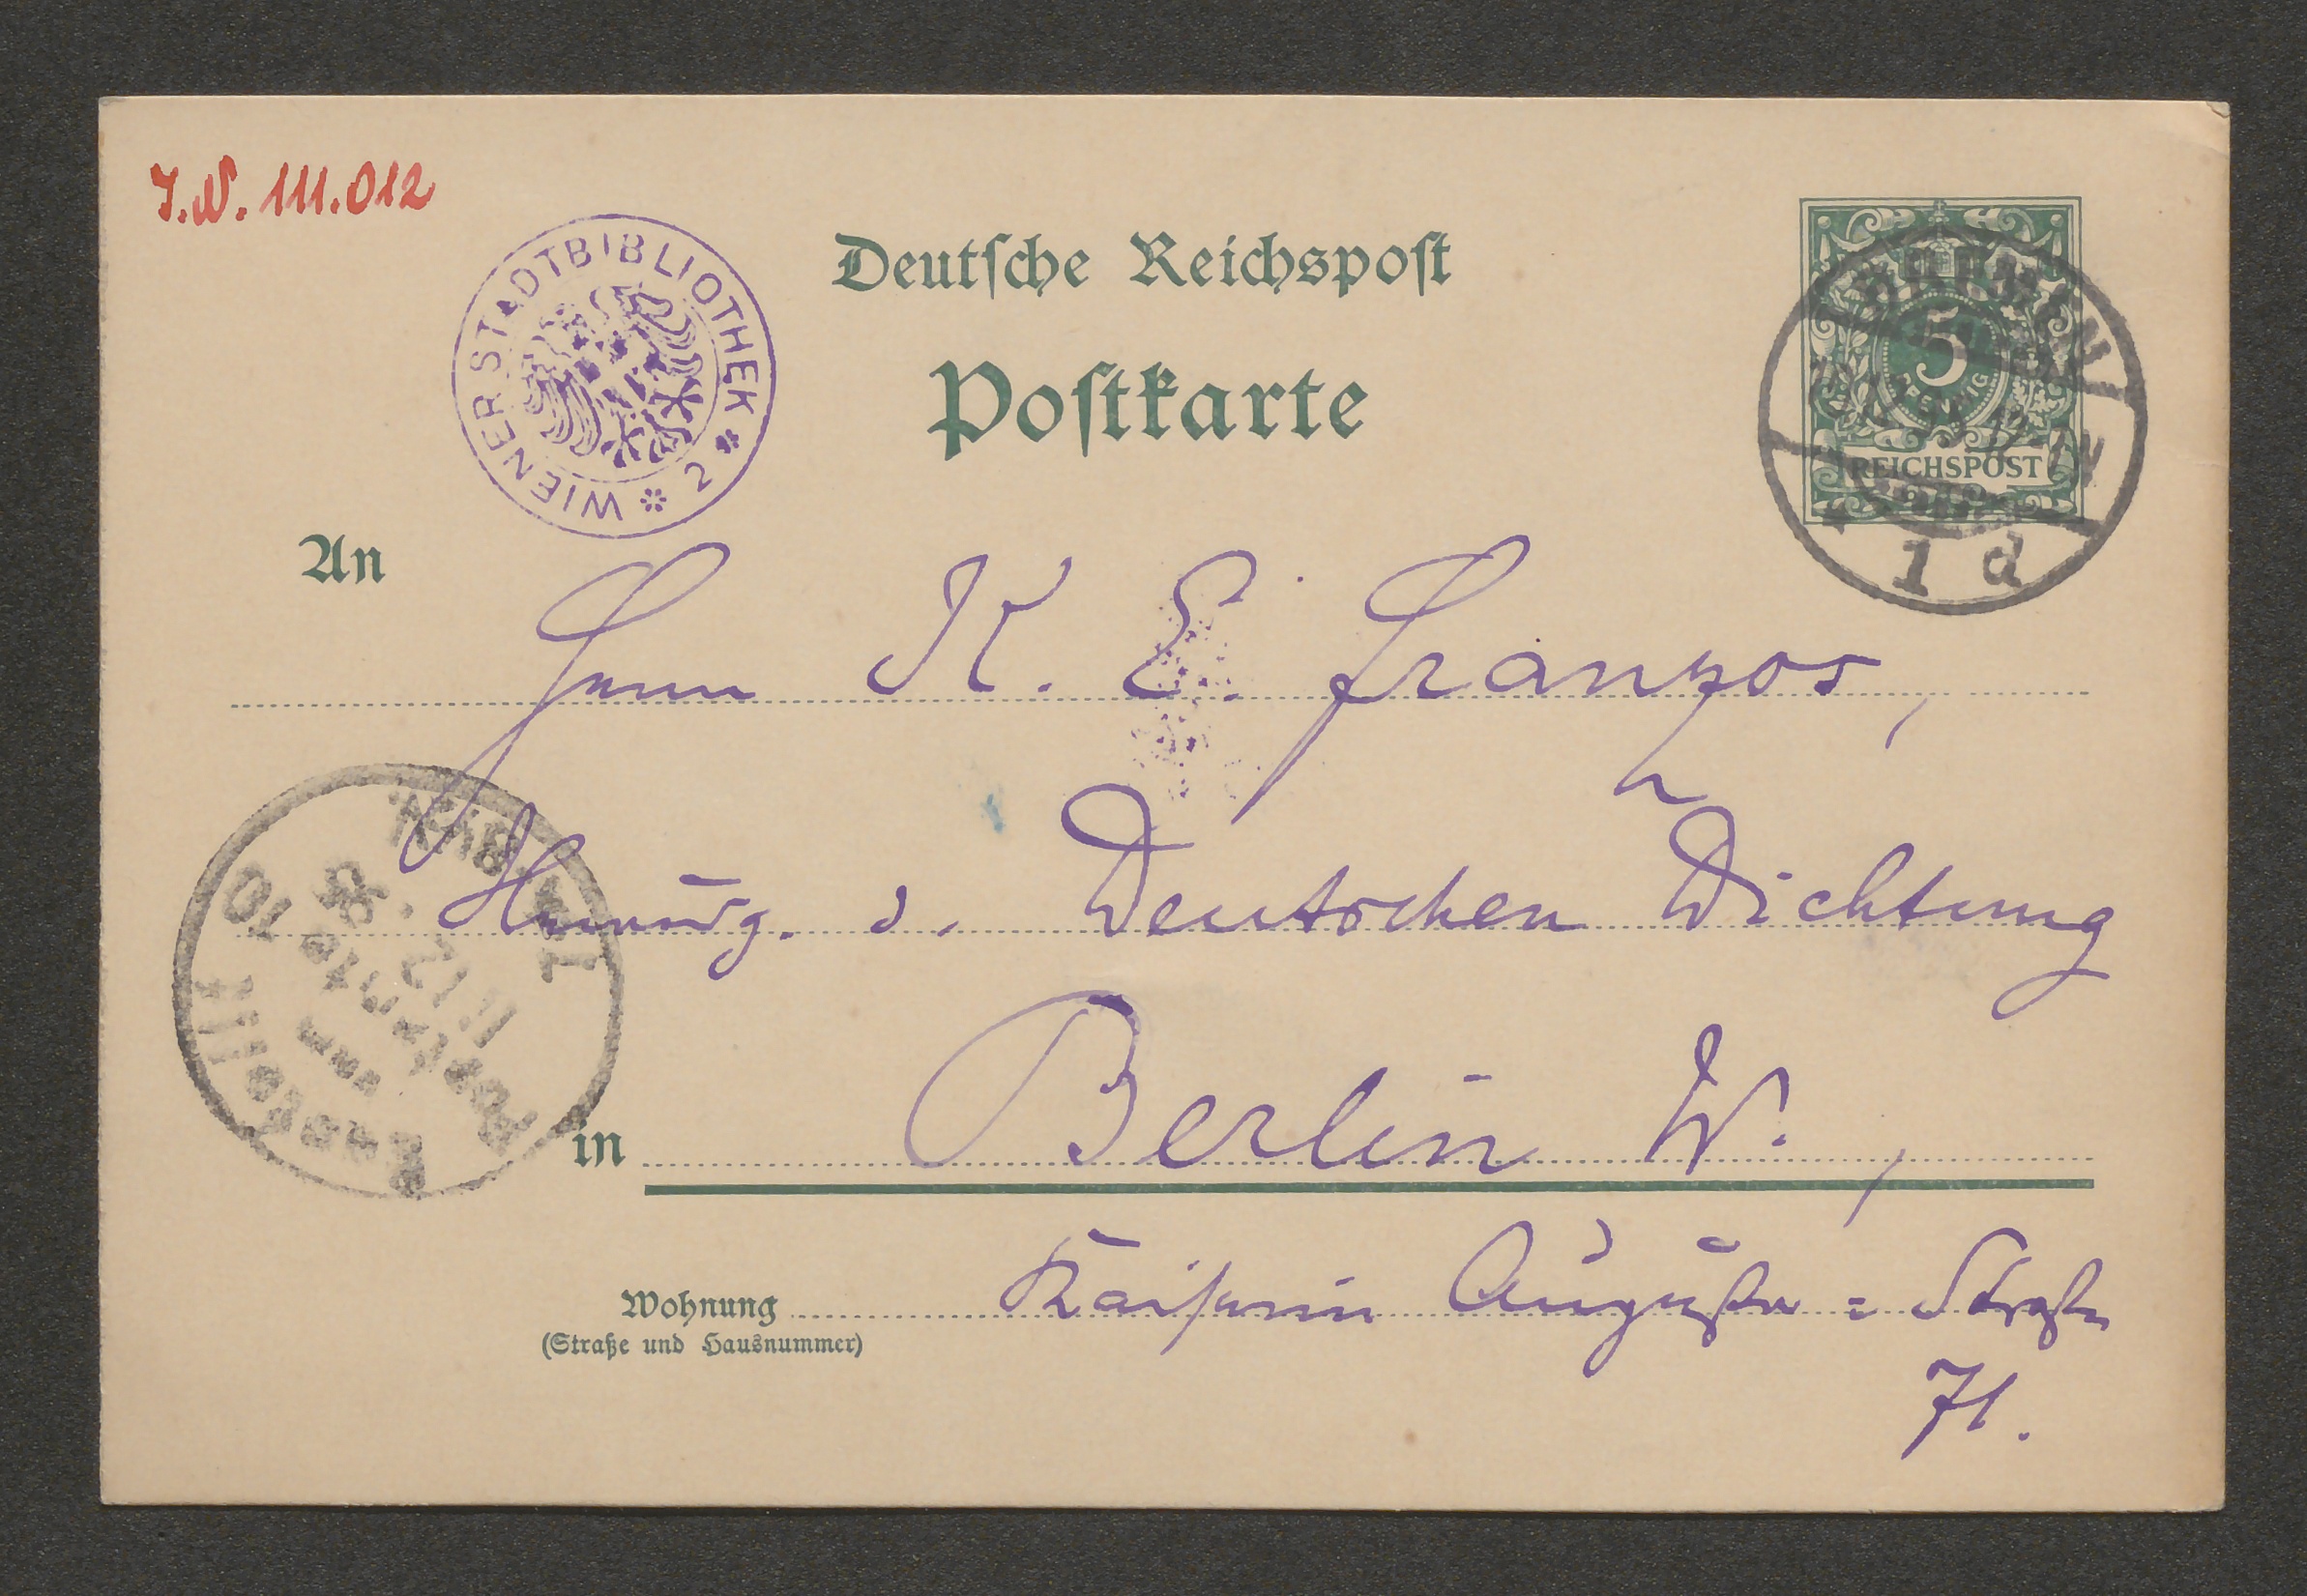 J.N. 111.012
WIENER STADTBIBLIOTHEK * 2 *
Deutſche Reichspoſt
Poſtkarte
BREMEN
5
PFENNIG
REICHSPOST
1 d
An
Herrn K. E. Franzos,
d. Deutschen Dichtung
in Berlin W.,
Wohnung Kaiserin Augusta-Straße
(Straße und Hausnummer)
71.
Bestellt
Postamte 10
11/12